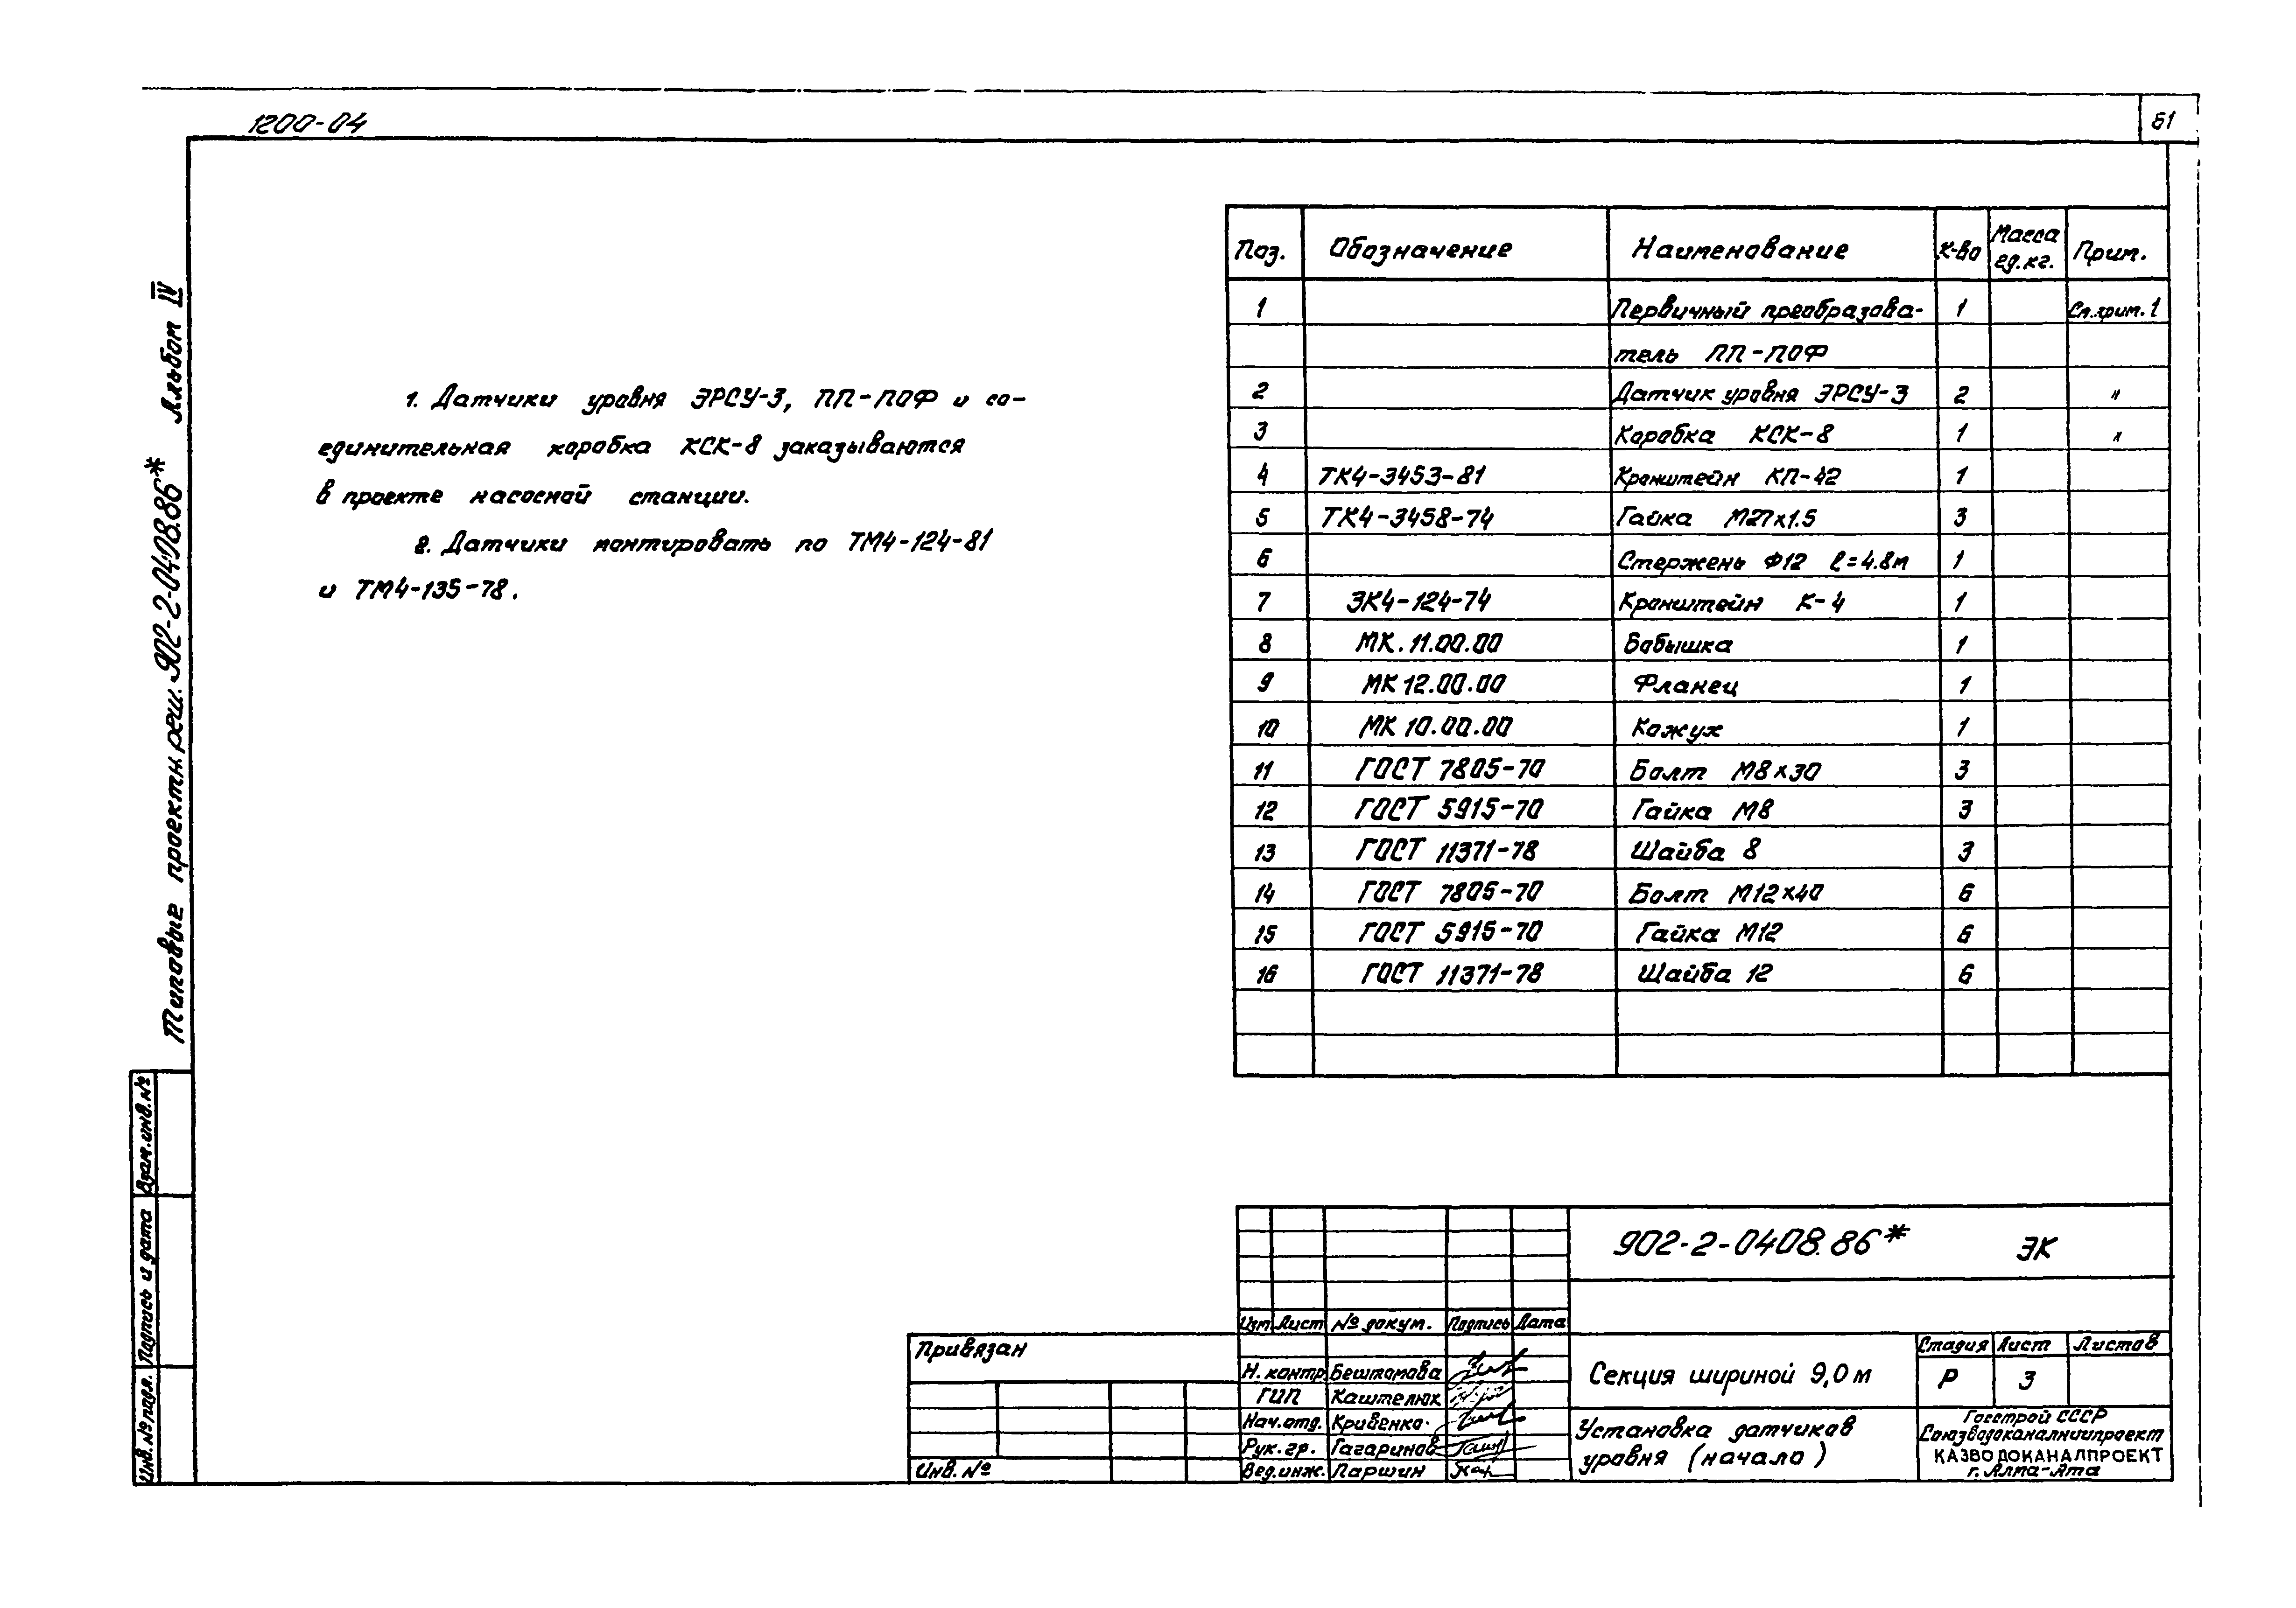 1200-04
61
Типовые проектн. реш. 902-2-0408.86* Альбом IV
1. Датчики уровня ЭРСУ-3, ПП-ПОФ и со-
единительная коробка КСК-8 заказываются
в проекте насосной станции.
2. Датчики монтировать по ТМ4-124-81
и ТМ4-135-78.
Поз. Обозначение Наименование К-во Масса ед.кг. Прим.
1 Первичный преобразова- 1 См.прим. 1
тель ПП-ПОФ
2 Датчик уровня ЭРСУ-3 2 "
3 Коробка КСК-8 1 "
4 ТК4-3453-81 Кронштейн КП-42 1
5 ТК4-3458-74 Гайка М27х1.5 3
6 Стержень Ф12 ℓ=4.8м 1
7 ЗК4-124-74 Кронштейн К-4 1
8 МК.11.00.00 Бобышка 1
9 МК 12.00.00 Фланец 1
10 МК 10.00.00 Кожух 1
11 ГОСТ 7805-70 Болт М8х30 3
12 ГОСТ 5915-70 Гайка М8 3
13 ГОСТ 11371-78 Шайба 8 3
14 ГОСТ 7805-70 Болт М12х40 6
15 ГОСТ 5915-70 Гайка М12 6
16 ГОСТ 11371-78 Шайба 12 6
Взам.инв.№
Подпись и дата
Инв.№ подл.
902-2-0408.86* ЭК
Изм Лист № докум. Подпись Дата
Привязан
Инв. №
Н. контр. Бештомова
ГИП Каштелюк
Нач.отд. Кривенко
Рук. гр. Гагаринов
Вед.инж. Паршин
Секция шириной 9,0 м
Стадия Лист Листов
Р 3
Установка датчиков
уровня (начало)
Госстрой СССР
Союзводоканалниипроект
КАЗВОДОКАНАЛПРОЕКТ
г. Алма-Ата